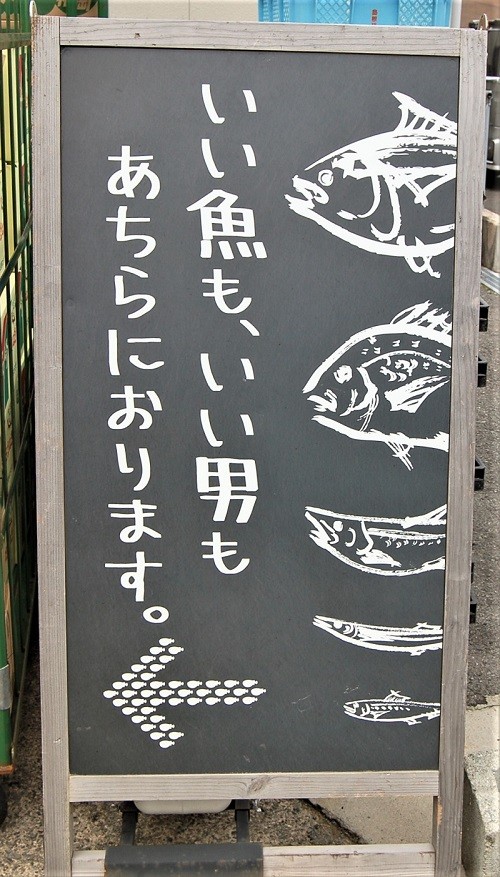 いい魚も、いい男も
あちらにおります。